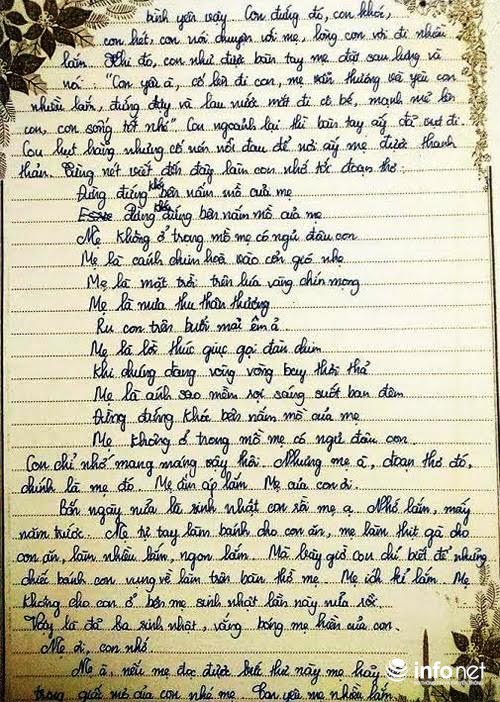 bình yên vậy. Con đứng đó, con khóc,
con hét, con nói chuyện với mẹ, lòng con vơi đi nhiều
lắm. Khi đó, con như được bàn tay mẹ đặt sau lưng và
nói: "Con yêu à, cố lên đi con, mẹ vẫn thương và yêu con
nhiều lắm, đứng dậy và lau nước mắt đi cô bé, mạnh mẽ lên
con, con sống tốt nhé". Con ngoảnh lại thì bàn tay ấy đã vụt đi.
Con hụt hẫng nhưng cố nén nỗi đau để nơi ấy mẹ được thanh
thản. Từng nét viết đến đây làm con nhớ tới đoạn thơ:
Đừng đứng khóc bên nấm mồ của mẹ
đừng đứng khóc bên nấm mồ của mẹ
Mẹ không ở trong mồ mẹ có ngủ đâu con
Mẹ là cánh chim hoà vào cơn gió nhẹ
Mẹ là mặt trời trên lúa vàng chín mọng
Mẹ là mưa thu thân thương
Ru con trên bước mai êm ả
Mẹ là lời thúc giục gọi đàn chim
Khi chúng đang vòng vòng bay thôi thả
Mẹ là ánh sao mềm rọi sáng suốt ban đêm
Đừng đứng khóc bên nấm mồ của mẹ
Mẹ không ở trong mồ mẹ có ngủ đâu con
Con chỉ nhớ mang máng vậy thôi. Nhưng mẹ à, đoạn thơ đó,
chính là mẹ đó. Mẹ ấm áp lắm. Mẹ của con ơi.
Bốn ngày nữa là sinh nhật con rồi mẹ ạ. Nhớ lắm, mấy
năm trước. Mẹ tự tay làm bánh cho con ăn, mẹ làm thịt gà cho
con ăn, làm nhiều lắm, ngon lắm. Mà bây giờ con chỉ biết để những
chiếc bánh con vụng về làm trên bàn thờ mẹ... Mẹ ích kỉ lắm. Mẹ
không cho con ở bên mẹ sinh nhật lần này nữa rồi.
Vậy là đã ba sinh nhật, vắng bóng mẹ hiền của con.
Mẹ ơi, con nhớ.
Mẹ à, nếu mẹ đọc được bức thư này mẹ hãy
trong giấc mơ của con nhé mẹ. Con yêu mẹ nhiều lắm.
infonet